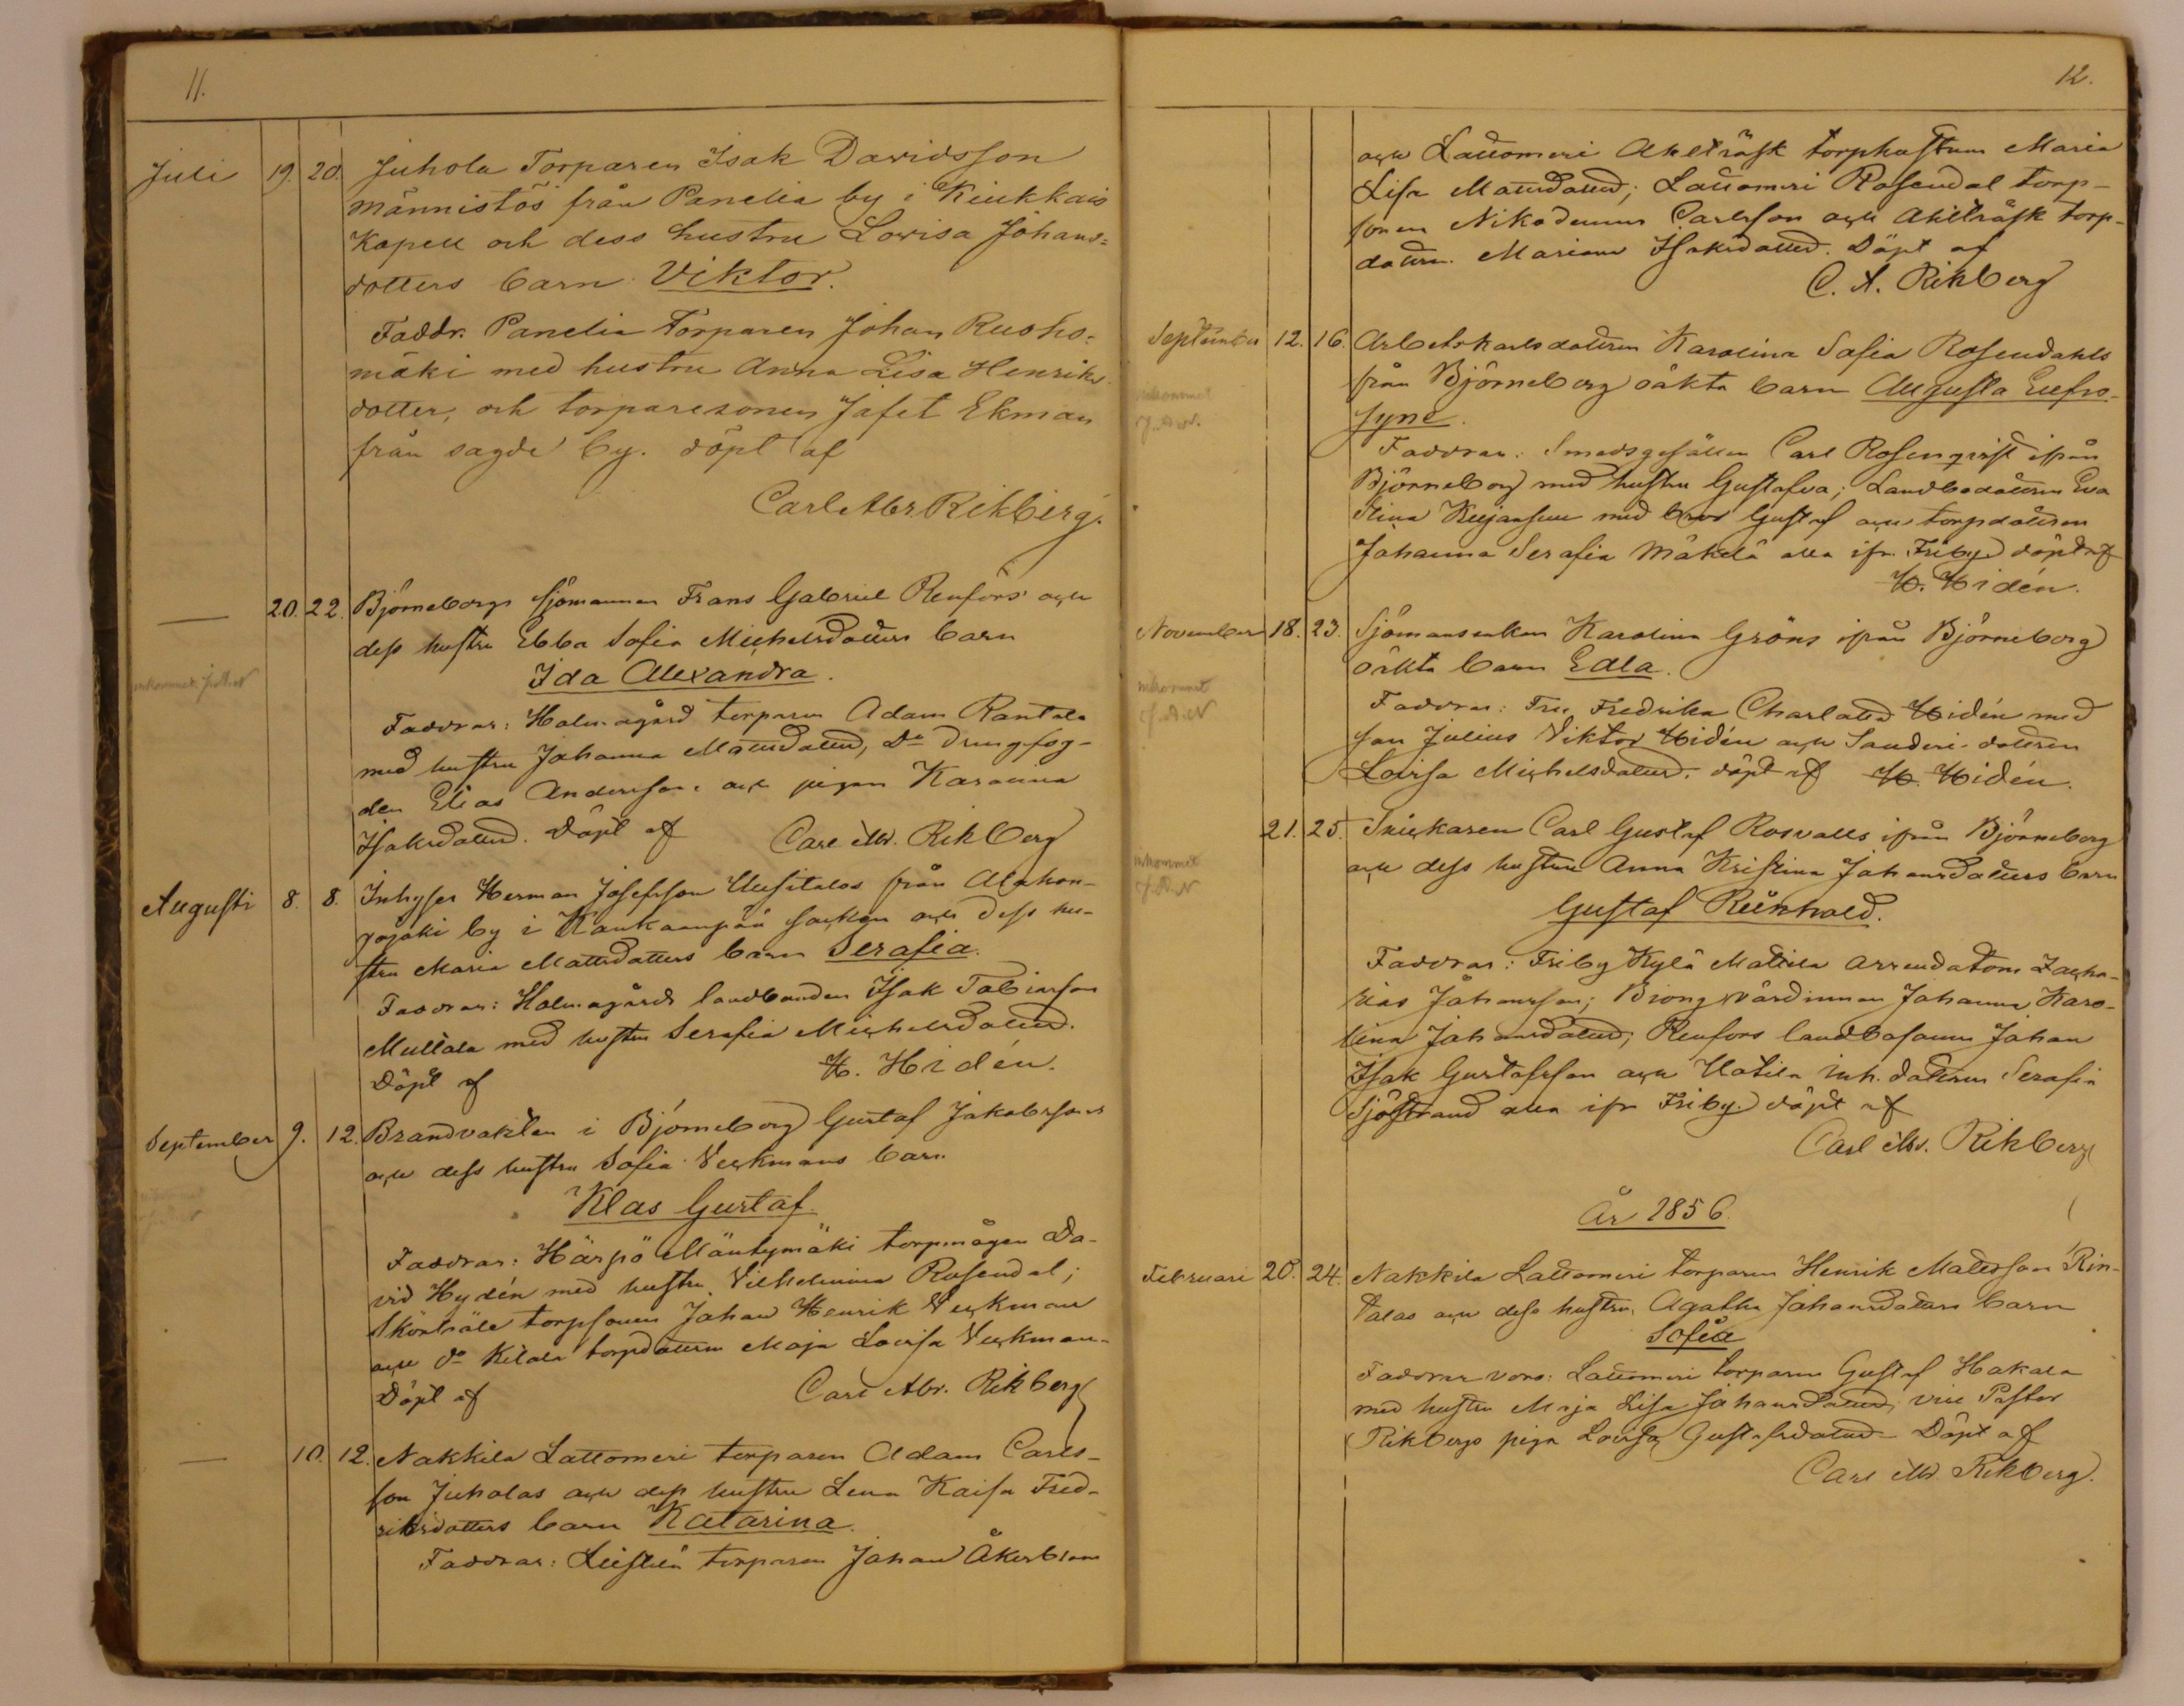 11.
Juli 19. 20. Juhola Torparen Isak Davidsson
Männistös från Panelia by i Kiukkais
Kapell och dess hustru Lovisa Johans=
dotters barn Viktor.
Faddr. Panelia Torparen Johan Ruoho=
mäki med hustru Anna Lisa Henriks
dotter, och torparesonen Jafet Ekman
från sagde by. döpt af
Carl Abr. Rikberg.
— 20. 22. Björneborgs sjömannen Frans Gabriel Renfors och
dess hustru Ebba Sofia Michelsdotters barn
Ida Alexandra.
Faddrar: Holmagård torparen Adam Rantala
med hustru Johanna Mattsdotter, Do dreng fog-
den Elias Andersson, och pigan Karolina
Isaksdotter. Döpt af Carl Abr. Rikberg
Augusti 8. 8. Inhyses Herman Josefsson Uusitalos från Alahon-
gojoki by i Kankaanpää socken och dess hu-
stru Maria Mattsdotters barn Serafia.
Faddrar: Holmagårds landbonden Isak Tobiasson
Mullala med hustru Serafia Michelsdotter.
Döpt af H. Hidén.
September 9. 12. Brandvakten i Björneborg Gustaf Jakobssons
och dess hustru Sofia Veckmans barn
Klas Gustaf.
Faddrar: Härpö Mäntymäki torpmågen Da-
vid Hydén med hustru Vilhelmina Rosendal;
torpsonen Johan Henrik Veckman
och do Kilala torpdottern Maja Lovisa Veckman.
Döpt af Carl Abr. Rikberg
— 10. 12. Nakkila Lattomeri torparen Adam Carls-
son Juholas och dess hustru Lena Kaisa Fred-
riksdotters barn Katarina.
Faddrar: Leistilä torparen Johan Åkerblom
12.
och Lattomeri Ahlträsk torphustrun Maria
Lisa Mattsdotter; Lattomeri Rosendal torp-
sonen Nikodemus Carlsson och Ahlträsk torp-
dottern Mariana Isaksdotter. Döpt af
C. A. Rikberg
September 12. 16. Arbetskarlsdottern Karolina Sofia Rosendahls
från Björneborg oäkta barn Augusta Eufro-
syne.
Faddrar: Smedsgesällen Carl Rosenqvist ifrån
Björneborg med hustru Gustafva; Landbodottern Eva
Stina Kujansuu med bror Gustaf och torpdottern
Johanna Serafia Mäkelä alla ifr. Friby. döpt af
H. Hidén.
November 18. 23. Sjömansenkan Karolina Gröns ifrån Björneborg
oäkta barn Edla.
Faddrar: Fru Fredrika Charlotta Hidén med
son Julius Viktor Hidén och Sanderi-dottern
Lovisa Michelsdotter. döpt af H. Hidén.
21. 25. Snickaren Carl Gustaf Rosvalls ifrån Björneborg
och dess hustru Anna Kristina Johansdotters barn
Gustaf Reinhold.
Faddrar: Friby Kylä Mattila arrendatorn Zacha-
rias Johansson; Brong värdinnan Johanna Karo-
lina Johansdotter; Renfors landbosonen Johan
Isak Gustafsson och Uotila inh. dottern Serafia
Sjöstrand alla ifr Friby. döpt af
Carl Abr. Rikberg
År 1856.
Februari 20. 24. Nakkila Lattomeri torparen Henrik Mattsson Rin-
talas och dess hustru Agatha Johansdotters barn
Sofia
Faddrar voro: Lattomeri torparen Gustaf Hakala
med hustru Maja Lisa Johansdotter, vice Pastor
Rikbergs piga Lovisa Gustafsdotter. Döpt af
Carl Abr. Rikberg.